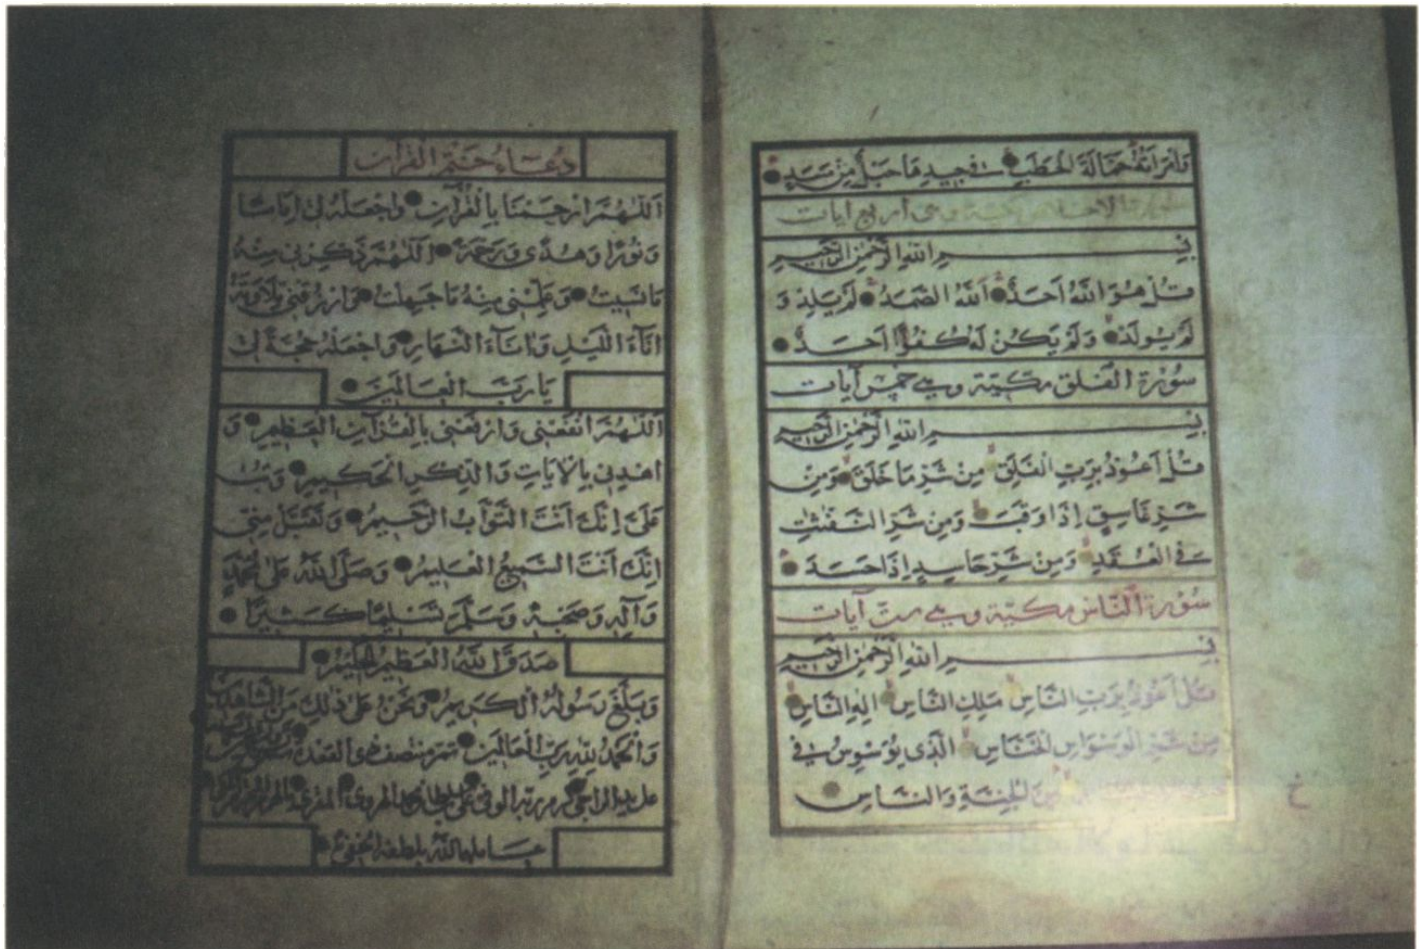 وامراته حمالة الحطب في جيدها حبل من مسد
سورة الاخلاص مكية وهى اربع ايات
بسم الله الرحمن الرحيم
قل هو الله احد الله الصمد لم يلد و
لم يولد ولم يكن له كفوا احد
سورة الفلق مكية وهي خمس آيات
بسم الله الرحمن الرحيم
قل اعوذ برب الفلق من شر ما خلق ومن
شر غاسق اذا وقب ومن شر النفثت
في العقد ومن شر حاسد اذا حسد
سورة الناس مكية وهي ست آيات
بسم الله الرحمن الرحيم
قل اعوذ برب الناس ملك الناس اله الناس
من شر الوسواس الخناس الذى يوسوس في
من الجنة والناس
دعاء ختم القرآن
اللهم ارحمنا بالقرآن واجعله لي اماما
ونورا وهدى ورحمة اللهم ذكرني منه
ما نسيت وعلمني منه ما جهلت وارزقني تلاوته
اناء الليل واناء النهار واجعله حجة لي
يا رب العالمين
اللهم انفعني وارفعني بالقرآن العظيم و
اهدني بالايات والذكر الحكيم وتب
علي انك انت التواب الرحيم وتقبل مني
انك انت السميع العليم وصلى الله على محمد
وآله وصحبه وسلم تسليما كثيرا
صدق الله العظيم الجليل
وبلغ رسوله الكريم ونحن على ذلك من الشاهدين
والحمد لله رب العالمين تم منتصف ذى القعدة
على يد الراجى
عاملهما الله بلطفه الخفي